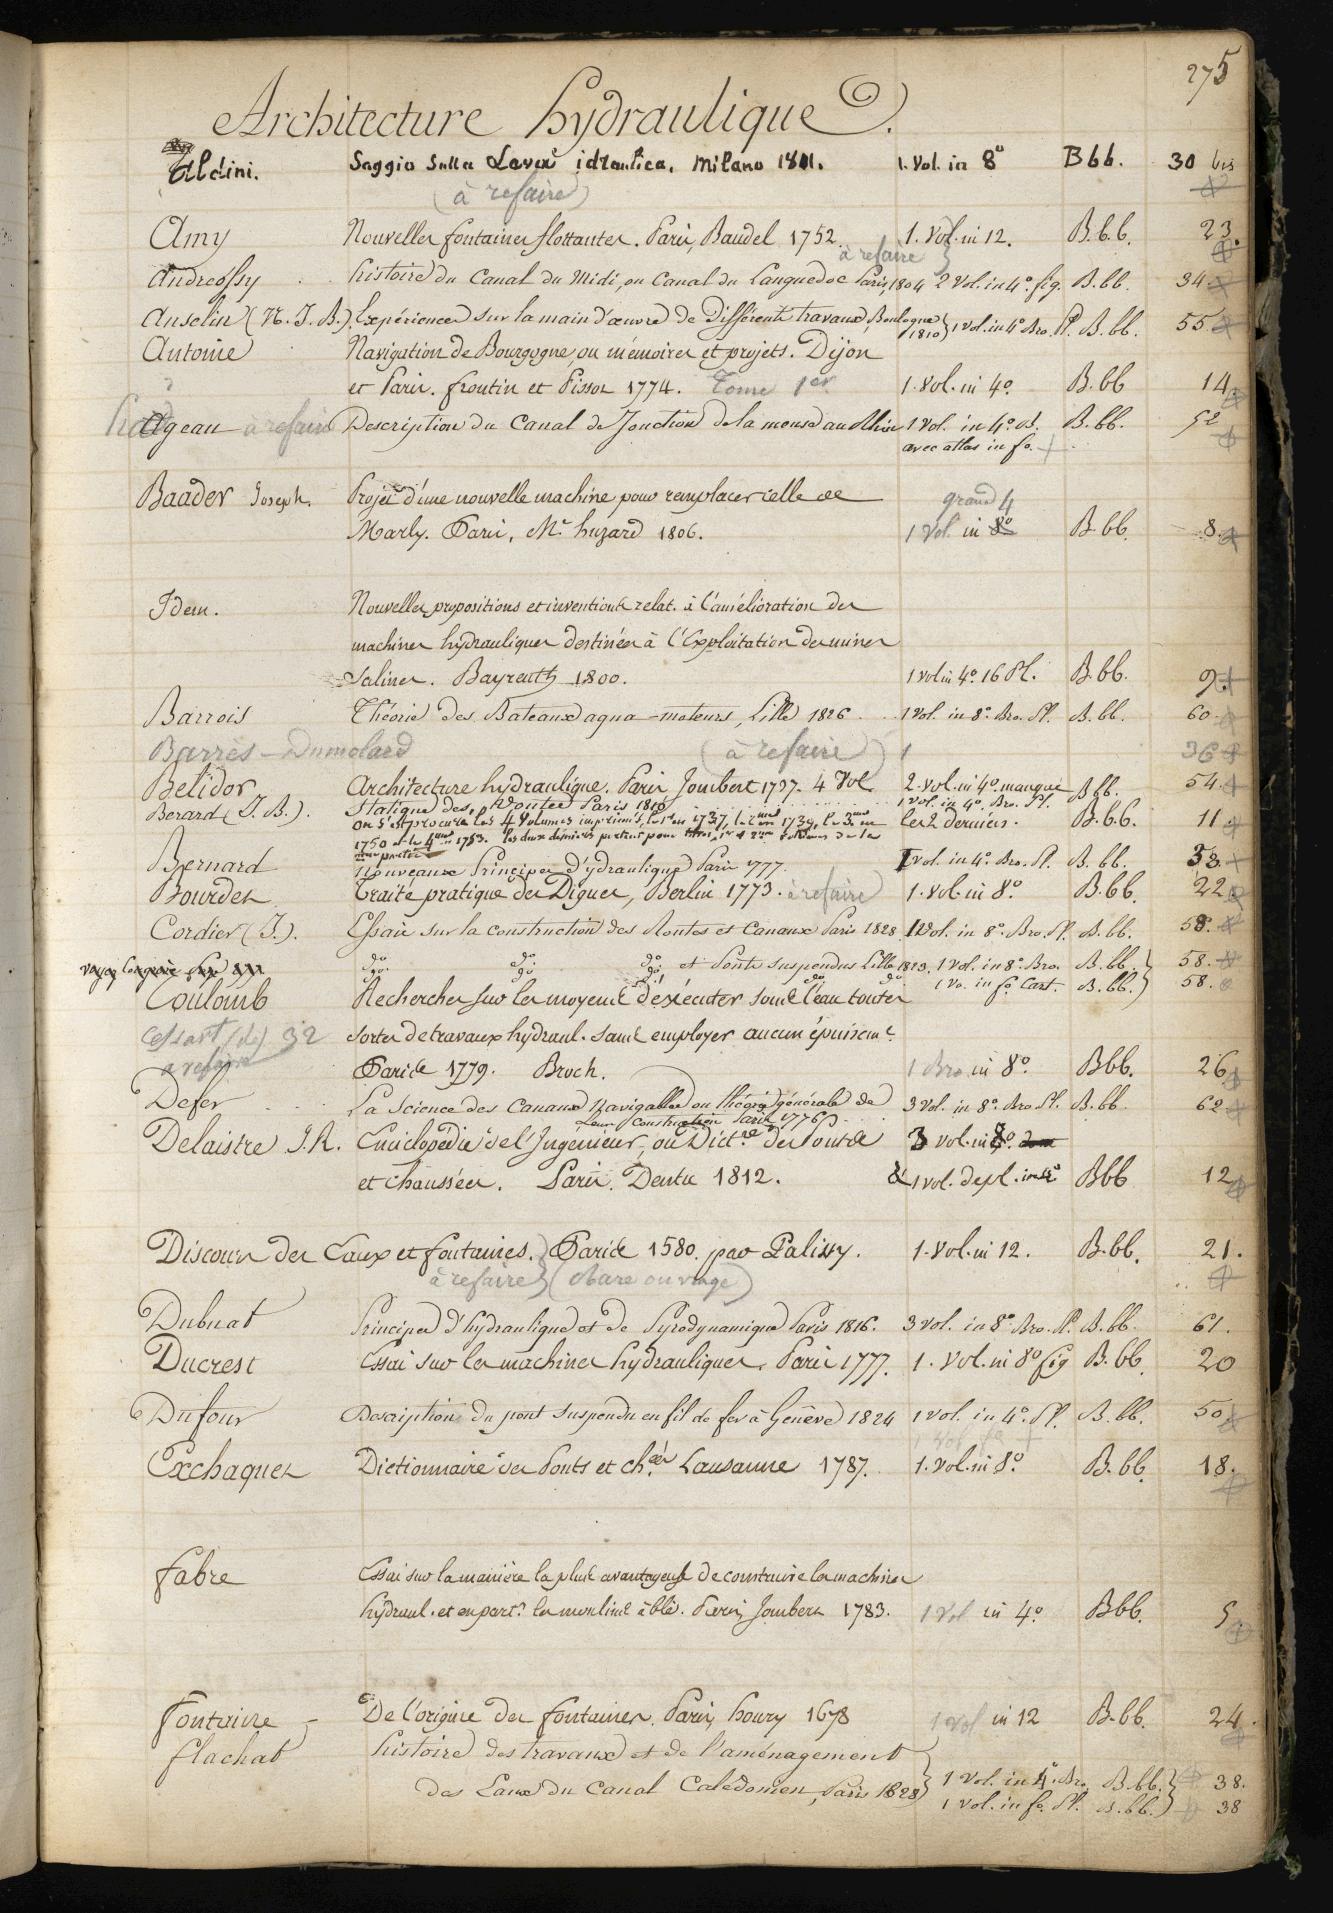 275
Architecture hydraulique.
Aldini. Saggio Sulla Leva idraulica. Milano 1811. 1. Vol. in 8° Bbb. 30 bis
(à refaire)
Amy Nouvelles fontaines flottantes. Paris, Baudel 1752. 1. Vol. in 12. B.b.b. 23.
à refaire
Andreossy histoire du Canal du Midi, ou Canal du Languedoc Paris, 1804 2 Vol. in 4°. fig. B.bb. 34.
Anselin (N. J. B.) Expériences sur la main d'œuvre de différents travaux, Boulogne 1810) 1 vol. in 4° Bro. Pl. B.bb. 55
Antoine Navigation de Bourgogne, ou mémoires et projets. Dijon
et Paris. froutin et Pissot 1774. Tome 1er 1. Vol. in 4° B.bb 14.
hageau à refaire Description du Canal de Jonction de la meuse au Rhin 1 Vol. in 4° B. B.bb. 52
avec atlas in fo.
Baader Joseph. Projet d'une nouvelle machine pour remplacer celle de grand 4
Marly. Paris, Me. huzard 1806. 1 Vol. in 8° B.bb. 8.
Idem. Nouvelles propositions et inventions relat. à l'amélioration des
machines hydrauliques destinées à l'Exploitation des mines
Salines. Bayreuth 1800. 1 vol in 4°. 16 Pl. B.bb. 9.
Barrois Théorie des Bateaux aqua-moteurs, Lille 1826 1 Vol. in 8°. Bro. Pl. B.bb. 60
Barrès-Dumolard (à refaire) 1 36
Belidor Architecture hydraulique. Paris Joubert 1737. 4 Vol 2. vol. in 4° manque B.bb. 54.
Berard (J. B.). Statique des Voutes Paris 1810 1 vol. in 4°. Bro. Pl.
on s'est procuré les 4 Volumes imprimés, le 1er en 1737, le 2eme en 1739, le 3eme en les 2 derniers. B.b.b. 11.
1750 et le 4eme en 1753. les deux derniers portent pour titre, 1er et 2eme volumes de la
2eme partie
Bernard Nouveaux Principes d'ydraulique Paris 1777. 1 vol. in 4°. Bro. Pl. B.bb. 33.
Bourdet Traité pratique des Digues, Berlin 1773. à refaire 1. vol. in 8° B.bb. 22
Cordier (J.). Essais sur la construction des Routes et Canaux Paris 1828 1 Vol. in 8°. Bro. Pl. B.bb. 58.
do. do. do. et Ponts suspendus Lille 1823. 1 Vol. in 8°. Bro. B.bb. 58.
do. do. do. do. do. 1 Vo. in fo. Cart. B.bb.) 58.
Coulomb Recherches sur les moyens d'exécuter sous l'eau toutes
Cessart (de) 32 sortes de travaux hydraul. sans employer aucun épuisemt.
à refaire Paris 1779. Broch. 1 Bro in 8° Bbb. 26
Defer La Science des Canaux Navigables ou théorie générale de 3 Vol. in 8°. Bro. Pl. B.bb. 62
leur construction Paris 1776.
Delaistre J. R. Enciclopédie de l'Ingenieur, ou Dictre. des Ponts 3 vol. in 8°.
et chaussées. Paris. Dentu 1812. & 1 vol. de pl. in 4° Bbb 12
Discours des Eaux et fontaines. Paris 1580. par Palissy. 1. vol. in 12. B.bb. 21.
à refaire (Rare ouvrage)
Dubuat Principes d'hydraulique et de Pyrodynamique Paris 1816. 3 vol. in 8° Bro. Pl. B.bb. 61.
Ducrest Essai sur les machines hydrauliques. Paris 1777. 1. Vol. in 8° fig B.bb. 20
Dufour Description du pont suspendu en fil de fer à Genève 1824 1 vol. in 4°. Pl. B.bb. 50
1 Vol fo
Exchaquet Dictionnaire des Ponts et chées. Lausanne 1787. 1. Vol. in 8° B.bb. 18.
Fabre Essai sur la manière la plus avantageuse de construire les machines
hydraul. et en partr. les moulins à blé. Paris, Joubert 1783. 1 Vol in 4° Bbb. 5
fontaine De l'origine des fontaines. Paris, houry 1678 1 Vol in 12 B.bb. 24.
flachat histoire des travaux et de l'aménagement
des Eaux du Canal Calédonien, Paris 1828) 1 Vol. in 4°. Bro. B.bb. 38.
1 Vol. in fo. Pl. B.bb.) 38